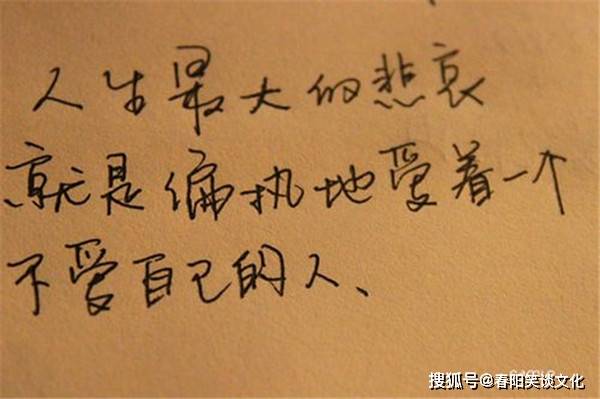 人生最大的悲哀
就是偏执地爱着一个
不爱自己的人、
搜狐号@春阳笑谈文化